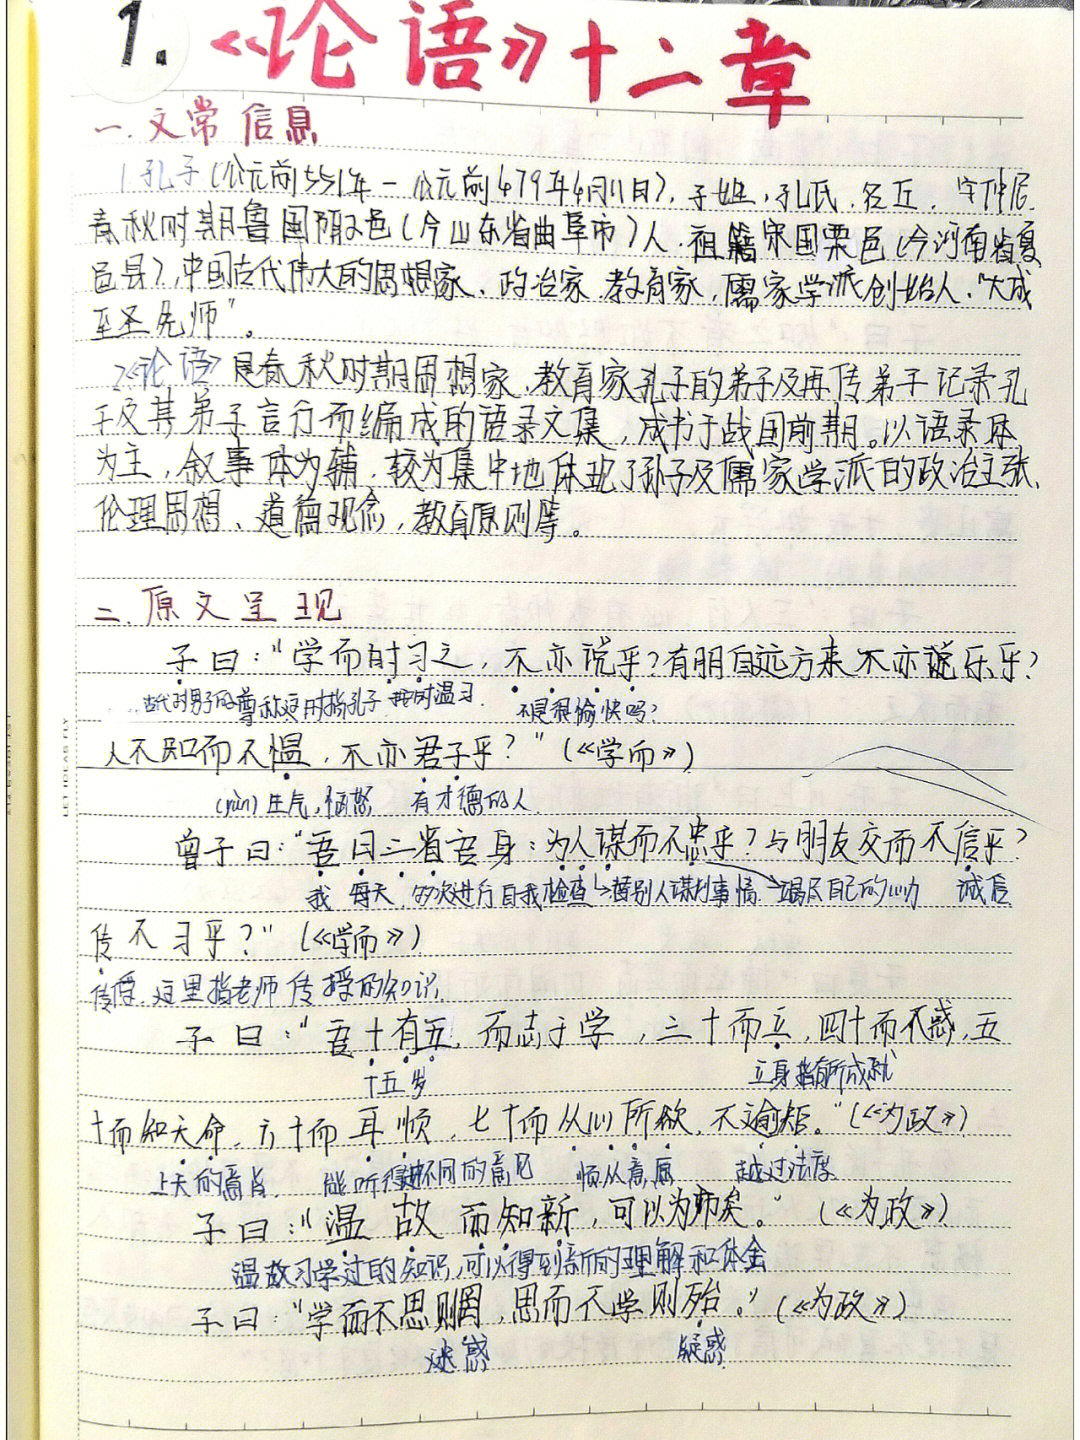 1.《论语》十二章
一.文常信息
1.孔子(公元前551年-公元前479年4月11日),子姓,孔氏,名丘,字仲尼,
春秋时期鲁国陬邑(今山东省曲阜市)人,祖籍宋国栗邑(今河南省夏
邑县),中国古代伟大的思想家、政治家、教育家,儒家学派创始人、"大成
至圣先师"。
2.《论语》是春秋时期思想家、教育家孔子的弟子及再传弟子记录孔
子及其弟子言行而编成的语录文集,成书于战国前期。以语录体
为主,叙事体为辅,较为集中地体现了孙子及儒家学派的政治主张、
伦理思想、道德观念,教育原则等。
二.原文呈现
子曰:"学而时习之,不亦说乎?有朋自远方来不亦乐乎?
古代对男子的尊称这时指孔子 按时温习. 不是很愉快吗?
人不知而不愠,不亦君子乎?"(《学而》)
(yùn)生气,恼怒 有才德的人
曾子曰:"吾日三省吾身:为人谋而不忠乎?与朋友交而不信乎?
我 每天 多次进行自我检查 替别人谋划事情 竭尽自己的心力 诚信
传不习乎?"(《学而》)
传授,这里指老师传授的知识.
子曰:"吾十有五,而志于学,三十而立,四十而不惑,五
十五岁 立身指有所成就
十而知天命,六十而耳顺,七十而从心所欲,不逾矩."(《为政》)
上天的意旨. 能听得进不同的意见 顺从意愿 越过法度
子曰:"温故而知新,可以为师矣。"(《为政》)
温故习学过的知识,可以得到新的理解和体会
子曰:"学而不思则罔,思而不学则殆。"(《为政》)
迷惑 疑惑
LET IDEAS FLY